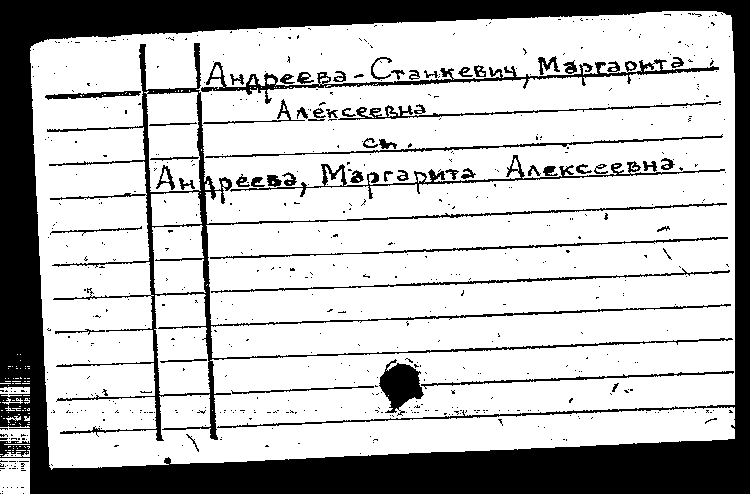 Андреева-Станкевич, Маргарита
Алексеевна.
см.
Андреева, Маргарита Алексеевна.